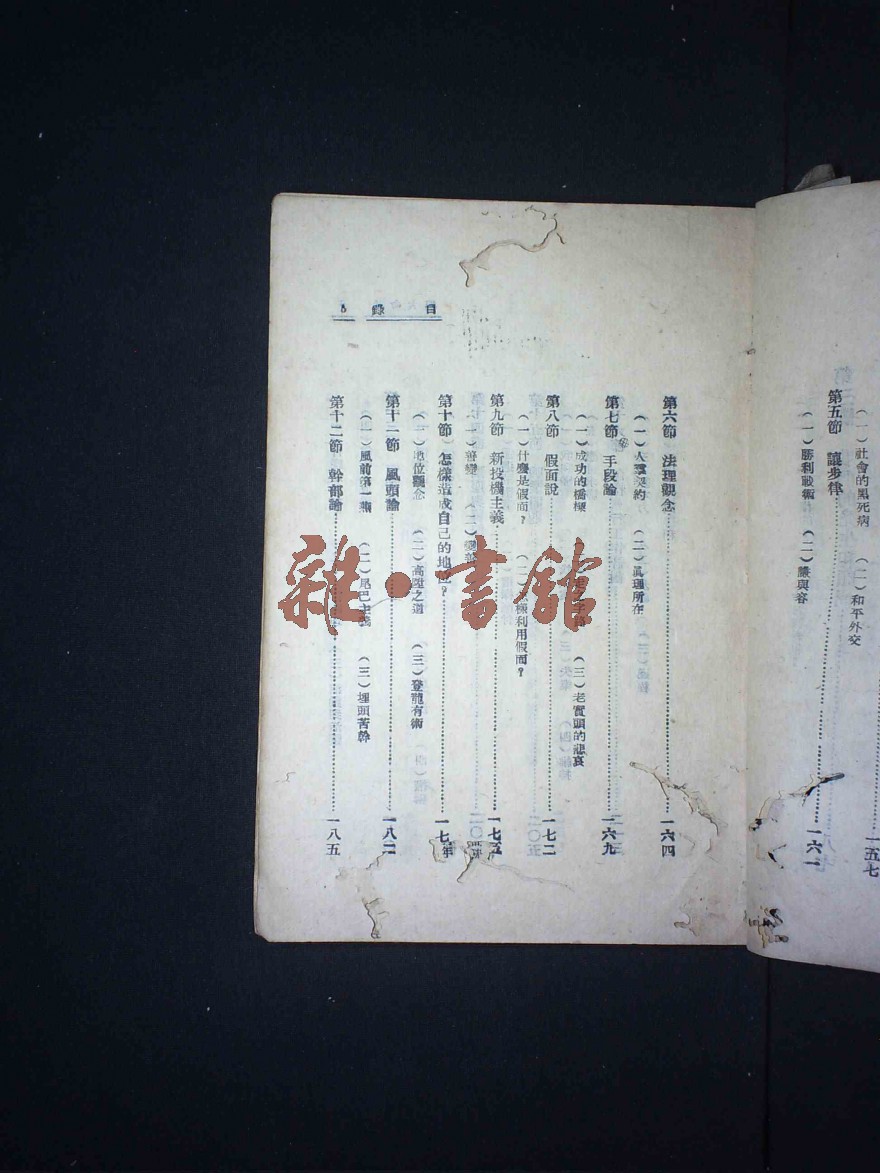 (一)社會的黑死病 (二)和平外交 一五七
第五節 讓步律 一六一
(一)勝利戰術 (二)讓與容
目錄
第六節 法理觀念 一六四
(一)人霎契約 (二)眞理所在
第七節 手段論 一六九
(一)成功的橋樑 (三)老實頭的悲哀
第八節 假面說 一七二
(一)什麼是假面? (二)極利用假面?
第九節 新投機主義 一七五
(一)善變 (二)
第十節 怎樣造成自己的地位? 一七
(一)地位觀念 (二)高陞之道 (三)登龍有術
第十一節 風頭論 一八二
(一)風前第一 (二)尾巴主義 (三)埋頭苦幹
第十二節 幹部論 一八五
雜·書館